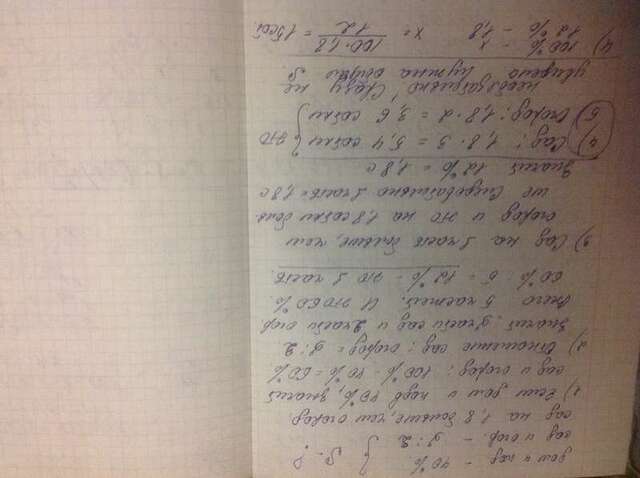 дом и под. - 40%. } S - ?
сад и огор. - 3:2
сад на 1,8 больше, чем огород.
1) Если дом и подв 40%, значит
сад и огород: 100% - 40% = 60%.
2) Отношение сад : огород = 3:2.
Значит 3 части сад и 2 части огор.
Всего 5 частей. И это 60%.
60% : 5 = 12% - это 1 часть.
3) Сад на 1 часть больше, чем
огород и это на 1,8 сотки боль-
ше Следовательно 1 часть = 1,8 с
Значит 12% = 1,8 с
4) Сад: 1,8 · 3 = 5,4 сотки } это
5) Огород: 1,8 · 2 = 3,6 сотки
необязательно! Сразу не
увидела нужна общая S.
4) 100% - х
12% - 1,8 х = 100·1,8 / 12 = 15 сот.